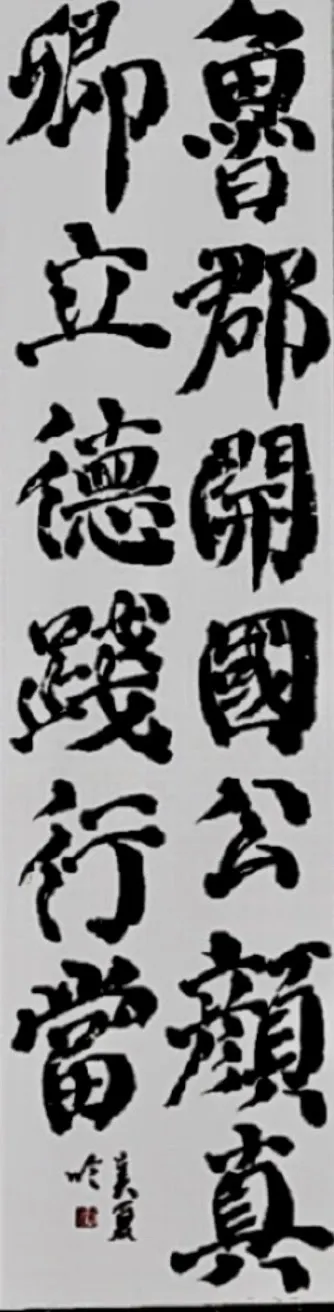 魯郡開國公顏真
卿立德踐行當